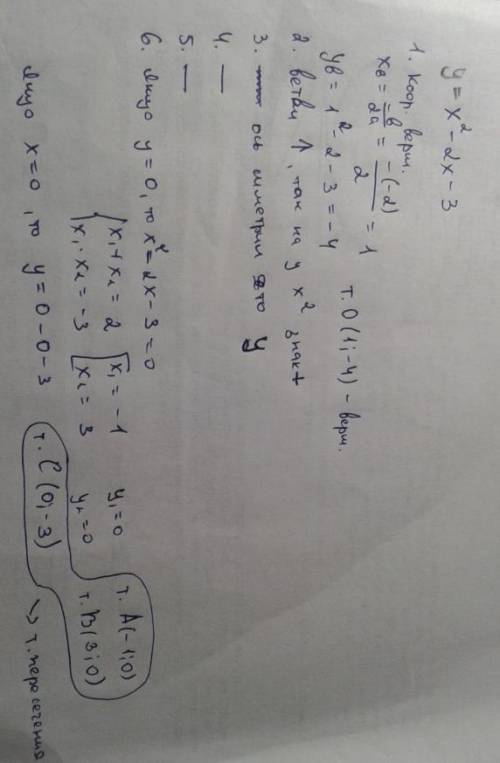 y = x² - 2x - 3
1. Коор. верш.
xв = -в/2a = -(-2)/2 = 1
yв = 1² - 2 - 3 = -4 т. О (1; -4) - верш.
2. ветви ↑, так на у x² знак +
3. ось симметрии это y
4. —
5. —
6. якщо y = 0, то x² = 2x - 3 = 0
{ x₁ + x₂ = 2 [ x₁ = -1 y₁ = 0 т. A(-1; 0)
x₁ · x₂ = -3 [ x₂ = 3 y₂ = 0 т. B(3; 0)
якщо x = 0, то y = 0 - 0 - 3 т. C (0; -3) ↳ т. пересечения